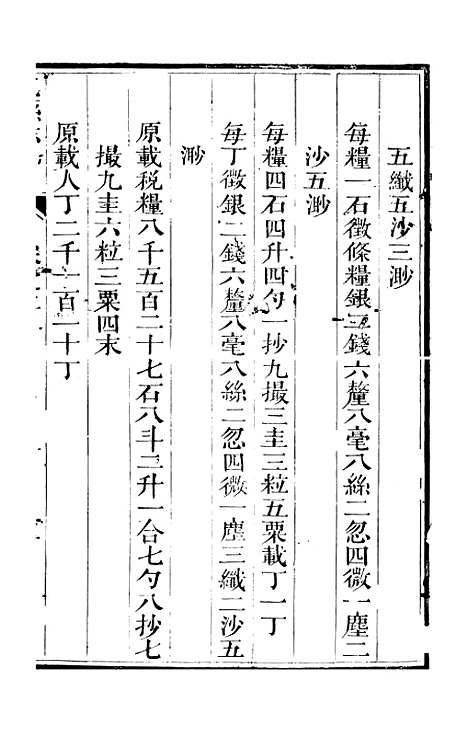 五纖五沙三渺
每糧一石徵條糧銀二錢六釐八毫八絲二忽四微一塵二
沙五渺
每糧四石四升四勺一抄九撮三圭三粒五粟載丁一丁
每丁徵銀二錢六釐八毫八絲二忽四微一塵三纖二沙五
渺
原載稅糧八千五百二十七石八斗二升一合七勺八抄七
撮九圭六粒三粟四末
原載人丁二千一百一十丁